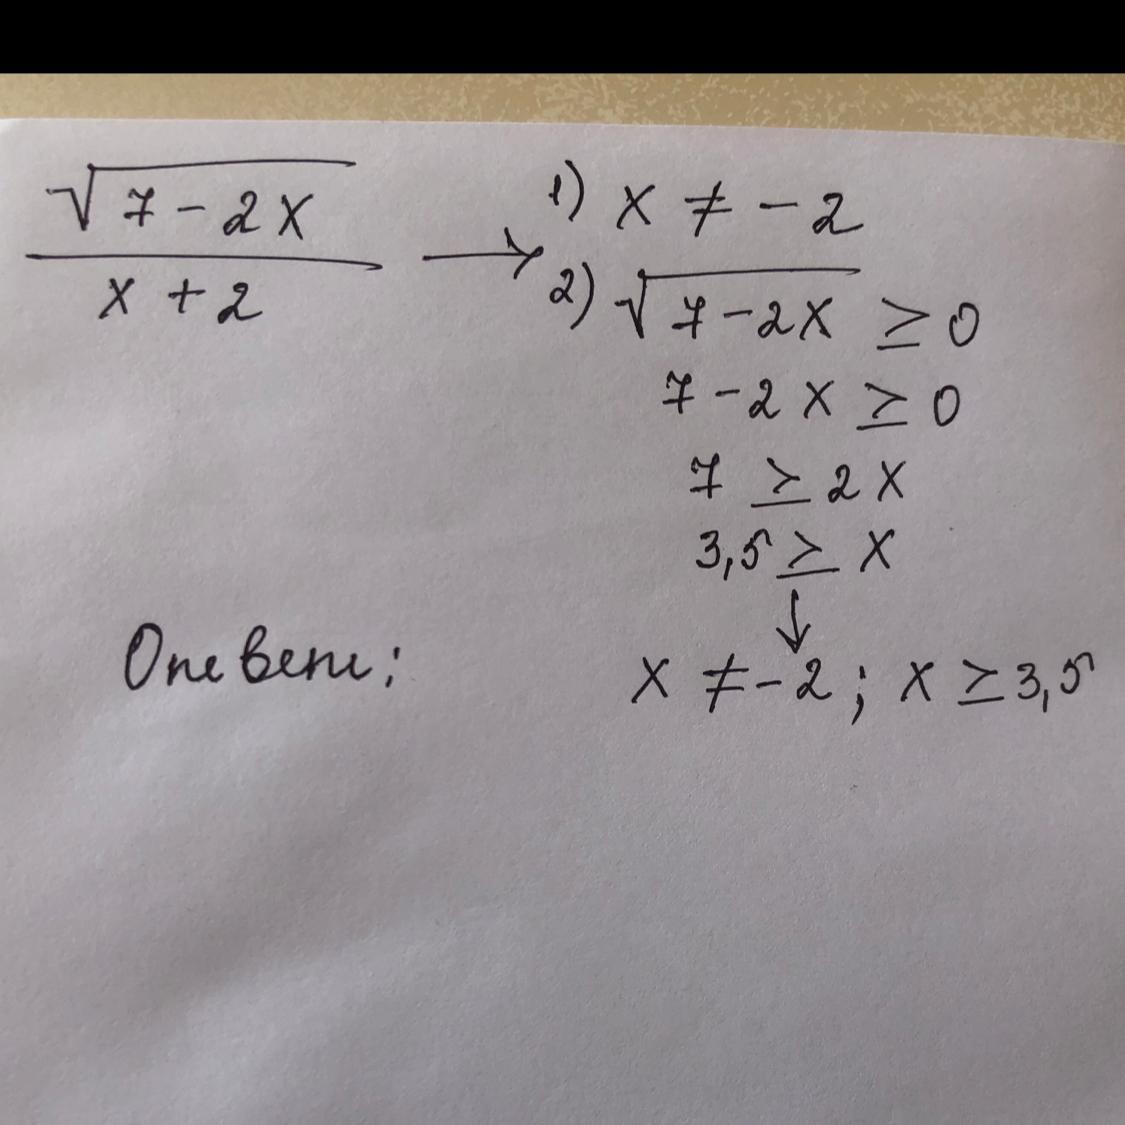 √(7 - 2x) / (x + 2) → 1) x ≠ -2
2) √(7 - 2x) ≥ 0
7 - 2x ≥ 0
7 ≥ 2x
3,5 ≥ x
↓
Ответ: x ≠ -2; x ≥ 3,5